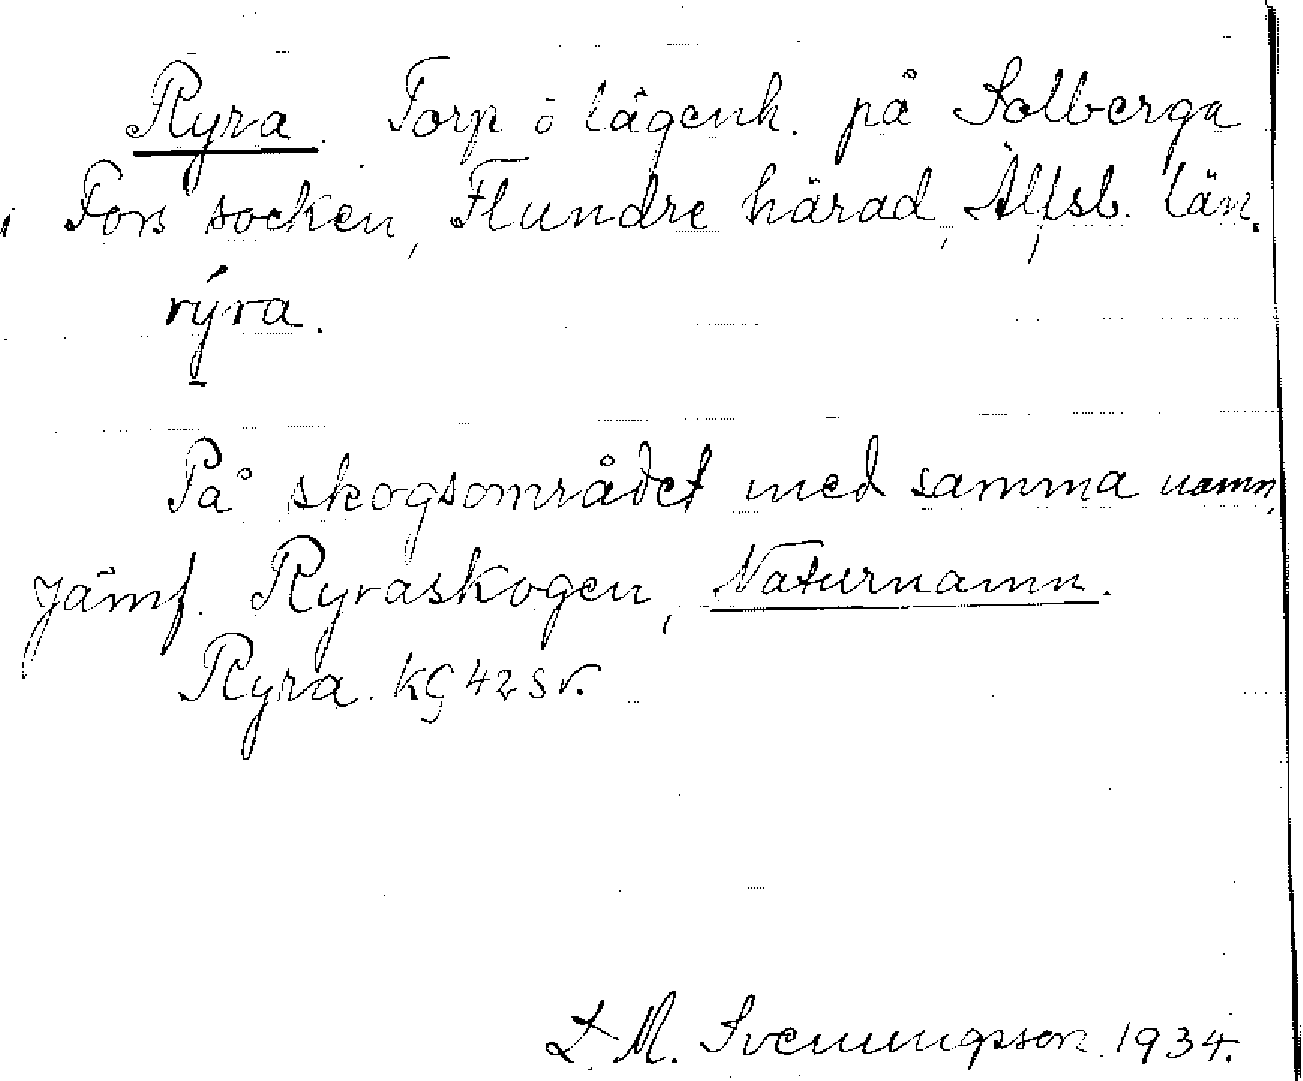 Ryra. Torp o lägenh. på Solberga
i Fors socken, Flundre härad, Älfsb. län.
rýra.
På skogsområdet med samma namn,
jämf. Ryraskogen, Naturnamn.
Ryra. KG 42 SV.
L. M. Svenungsson. 1934.